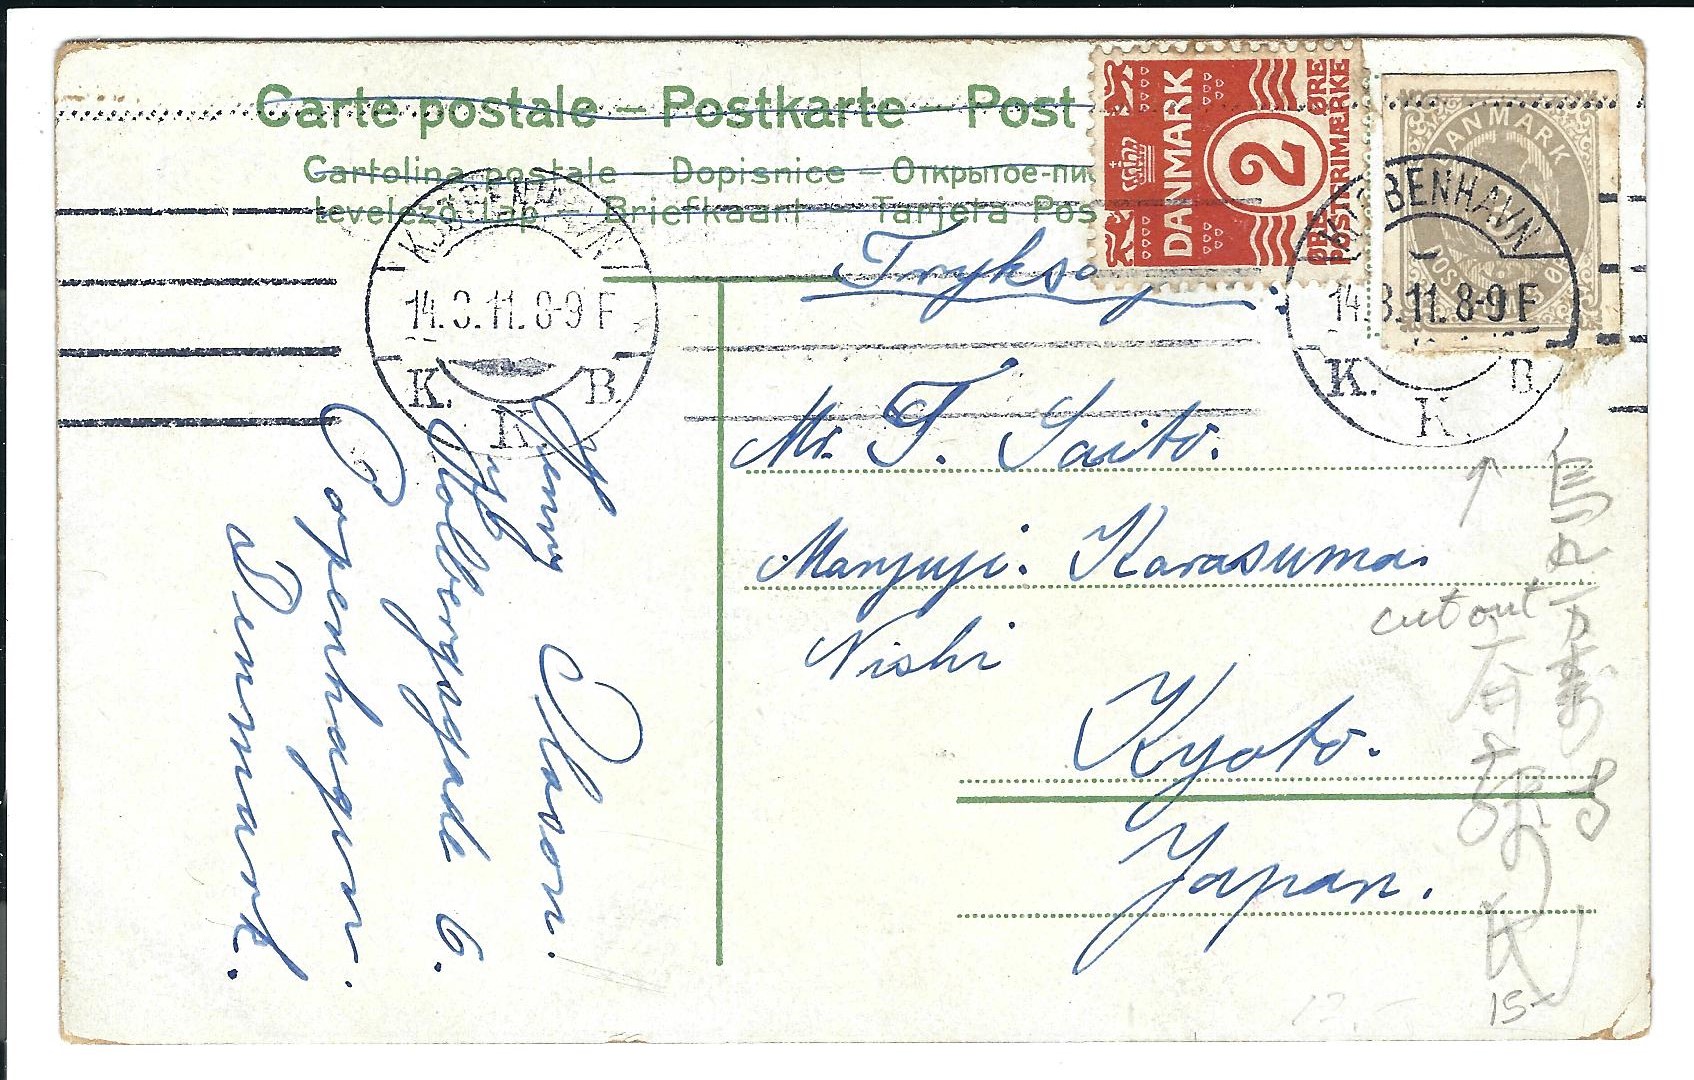 Carte postale – Postkarte – Post
Cartolina postale – Dopisnice – Открытое-пи
Levelező-Lap – Briefkaart – Tarjeta Pos
DANMARK
2
ØRE
POSTFRIMÆRKE
ØRE
POSTFRIMÆRKE
DANMARK
KJØBENHAVN
14.3.11. 8-9 F
K. K. B.
KJØBENHAVN
14.3.11. 8-9 F
K. K. B.
Mr. T. Saito.
Manjuji. Karasuma
Nishi
Kyoto.
Japan.
Olsson.
Holbergsgade 6.
Copenhagen.
Denmark.
cut out
15-